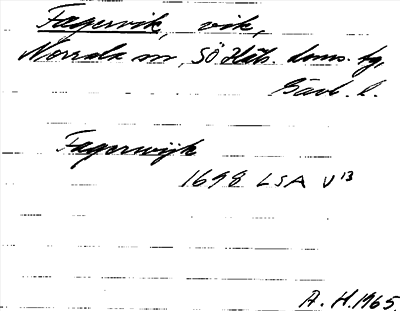 Fagervik, vik,
Norrala sn, SÖ Häls. doms. tg,
Gävl. l.
Fagerwijk
1698 LSA V 13
A. H. 1965.